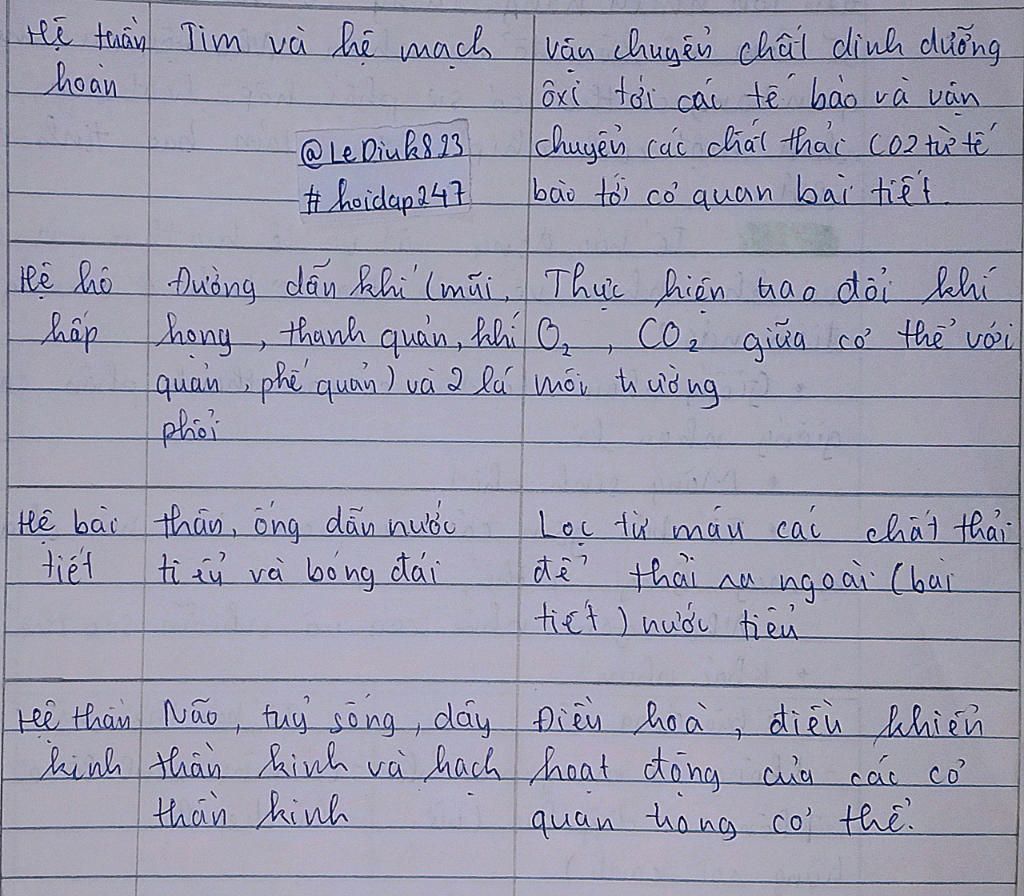 Hệ tuần hoàn
Tim và hệ mạch
vận chuyển chất dinh dưỡng
ôxi tới các tế bào và vận
chuyển các chất thải CO2 từ tế
bào tới cơ quan bài tiết.
@LeDiuh823
# hoidap247
Hệ hô hấp
Đường dẫn khí (mũi,
họng, thanh quản, khí
quản, phế quản) và 2 lá
phổi
Thực hiện trao đổi khí
O2, CO2 giữa cơ thể với
môi trường
Hệ bài tiết
thận, ống dẫn nước
tiểu và bóng đái
Lọc từ máu các chất thải
để thải ra ngoài (bài
tiết) nước tiểu
Hệ thần kinh
Não, tuỷ sống, dây
thần kinh và hạch
thần kinh
Điều hoà, điều khiển
hoạt động của các cơ
quan trong cơ thể.